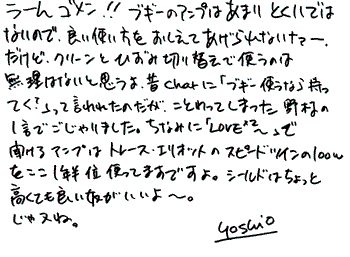 うーん ゴメン!! ブギーのアンプはあまり とくいでは
ないので、良い使い方を おしえてあげられないなァー。
だけど、クリーンと ひずみ 切り替えで使うのは
無理はないと思うよ。昔 charに「ブギー使うなら持っ
てく?」って言われたのだが、ことわってしまった 野村の
1言でごじゃりました。ちなみに「LOVE²〜」で
聞ける アンプは トレース・エリオットの スピードツインの100W
をここ1年半位 使ってますですよ。シールドはちょっと
高くても良い奴がいいよ〜。
じゃヌね。
Yoshio